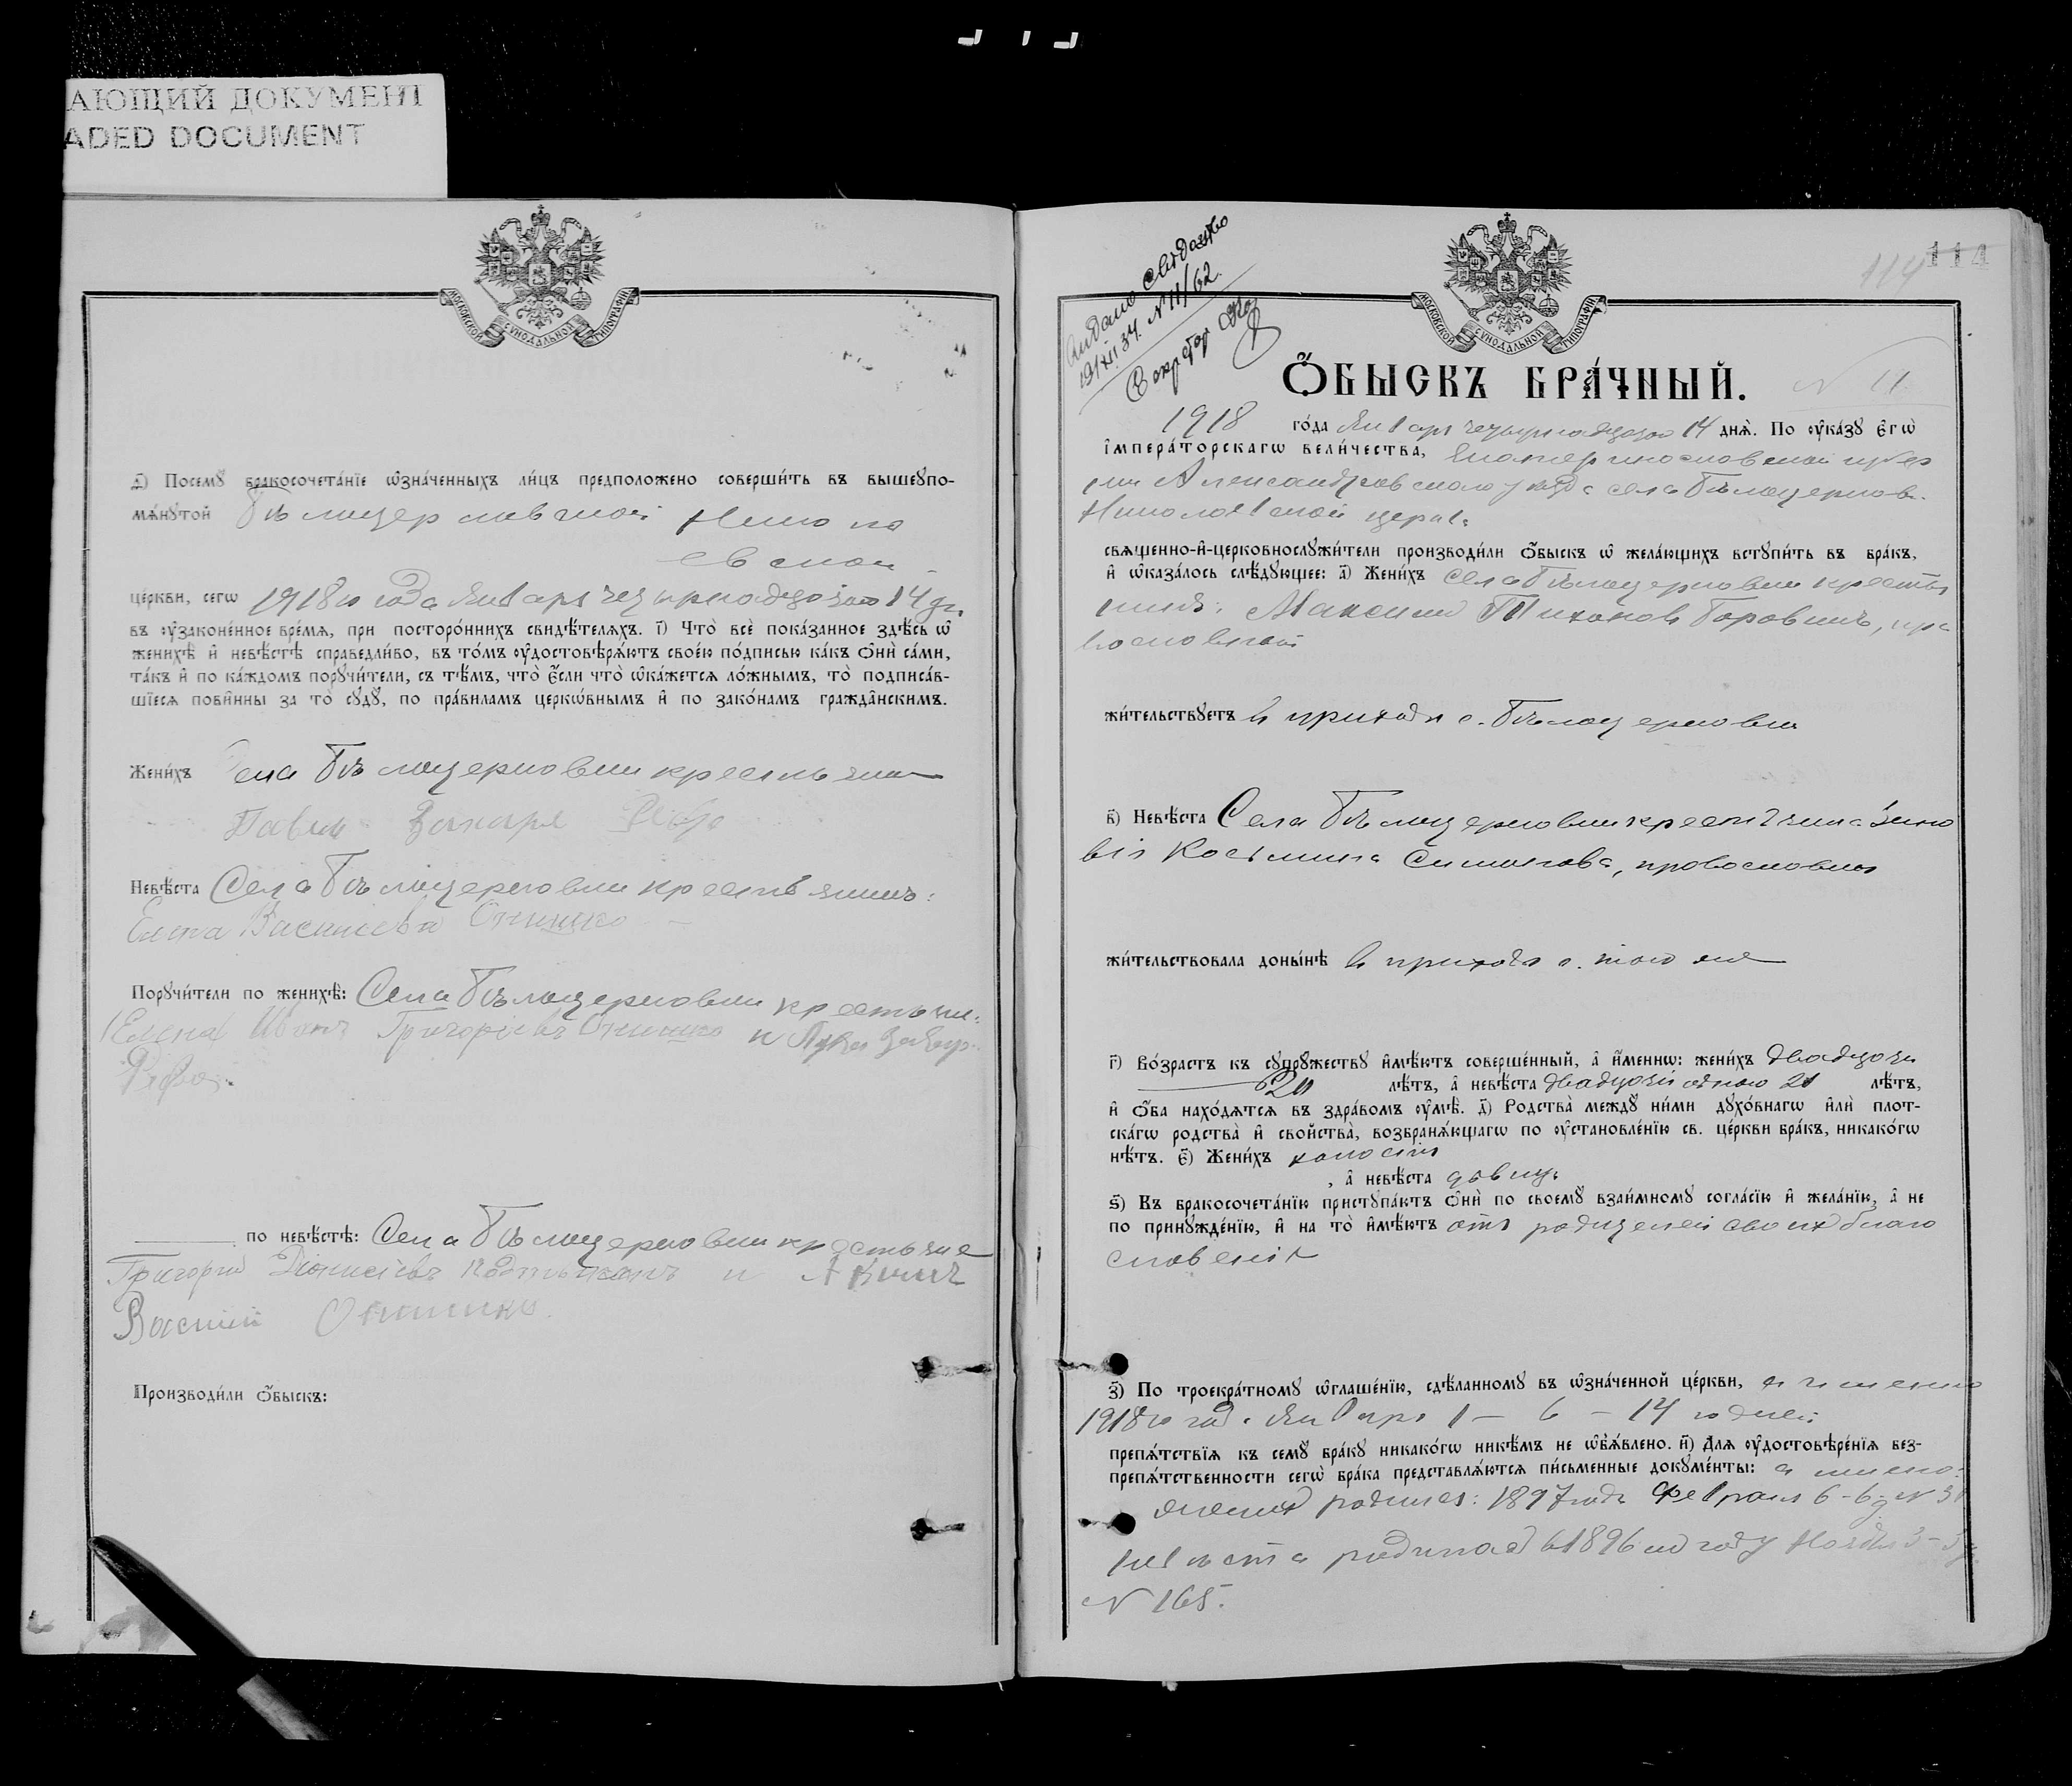 АЮЩИЙ ДОКУМЕНТ
ADED DOCUMENT
МОСКОВСКОЙ СѴНОДАЛЬНОЙ ТИПОГРАФІИ
Посемꙋ̀ бракосочета́нїе ѡ҆зна́ченныхъ ли́цъ предположено соверши́ть въ вышеꙋпо-
мѧ́нꙋтой Бѣлоцерковской Нико ла
евской
це́ркви, сегѡ 1918 го года Января четырнадцатого 14 дн.
въ ᲂу҆законе́нное вре́мѧ, при посторо́ннихъ свидѣ́телѧхъ. і҃) Что̀ всѐ пока́занное здѣ́сь ѡ҆
женихѣ̀ и҆ невѣ́стѣ справедли́во, въ то́мъ ᲂу҆достовѣрѧ́ютъ свое́ю по́дписью ка́къ ѻ҆нѝ са́ми,
та́къ и҆ по ка́ждомъ порꙋчи́тели, съ тѣ́мъ, что̀ є҆́сли что̀ ѡ҆ка́жетсѧ ло́жнымъ, то̀ подписа́в-
шїесѧ пови́нны за то̀ сꙋдꙋ̀, по пра́виламъ церко́внымъ и҆ по зако́намъ гражда́нскимъ.
Жени́хъ Села Бѣлоцерковки крестьянин
Павел Захаря
Невѣ́ста Села Бѣлоцерковки крестьянин:
Елена Василиева Онишко
Порꙋчи́тели по женихѣ̀: Села Бѣлоцерковки крестьян:
Иван Григорієвъ Онишко и Лука
по невѣ́стѣ: Села Бѣлоцерковки крестьяне
Григорій Діонисіевъ и
Василий Онишко.
Производи́ли ѻ҆́быскъ:
114 114
Выдано свидоцтво
19/XII 34. N 11/62.
Секретар
МОСКОВСКОЙ СѴНОДАЛЬНОЙ ТИПОГРАФІИ
Ѻ҆́БЫСКЪ БРА́ЧНЫЙ. N 11.
1918 го́да Января четырнадцатого 14 днѧ̀. По ᲂу҆ка́зꙋ є҆гѡ̀
і҆мпера́торскагѡ вели́чества, Екатеринославской губер
нии Александровского уезда села Бѣлоцерков.
Николаевской церкв.
свѧщенно-и҆-церковнослꙋжи́тели производи́ли ѻ҆́быскъ ѡ҆ жела́ющихъ встꙋпи́ть въ бра́къ,
и҆ ѡ҆каза́лось слѣ́дꙋющее: а҃) Жени́хъ села Бѣлоцерковки крестья
нинъ: Максим Тихонов Боровикъ, пра
вославный
жи́тельствꙋетъ в приходѣ с. Бѣлоцерковки
в҃) Невѣ́ста Села Бѣлоцерковки крестьянка Зино
вія Косьмина Симонова, православная
жи́тельствовала доны́нѣ в приходѣ с. того же
г҃) Во́зрастъ къ сꙋпрꙋ́жествꙋ и҆мѣ́ютъ соверше́нный, а҆ и҆́меннѡ: жени́хъ двадцати
20 лѣ́тъ, а҆ невѣ́ста двадцати одного 21 лѣ́тъ,
и҆ ѻ҆́ба нахо́дѧтсѧ въ здра́вомъ ᲂу҆мѣ̀. д҃) Родства̀ междꙋ̀ ни́ми дꙋхо́внагѡ и҆лѝ плот-
ска́гѡ родства̀ и҆ свойства̀, возбранѧ́ющагѡ по ᲂу҆становле́нїю св. це́ркви бра́къ, никако́гѡ
нѣ́тъ. є҃) Жени́хъ холостъ
, а҆ невѣ́ста дѣвица
ѕ҃) Въ бракосочета́нїю пристꙋпа́ютъ ѻ҆нѝ по своемꙋ̀ взаи́мномꙋ согла́сїю и҆ жела́нїю, а҆ не
по принꙋжде́нїю, и҆ на то̀ и҆мѣ́ютъ отъ родителей своих благо
словенія
з҃) По троекра́тномꙋ ѡ҆глаше́нїю, сдѣ́ланномꙋ въ ѡ҆зна́ченной це́ркви, а именно
1918 го года Января 1 – 6 – 14 го дней
препѧ́тствїѧ къ семꙋ̀ бра́кꙋ никако́гѡ никѣ́мъ не ѡ҆бъѧ́влено. и҃) Длѧ ᲂу҆достовѣре́нїѧ без-
препѧ́тственности сегѡ̀ бра́ка представлѧ́ютсѧ пи́сьменные докꙋме́нты: а имено:
жених родился: 1897 года Февраля 6-6 д N 31
невѣста родилась в 1896 м году Ноября 3-3 д.
N 165.